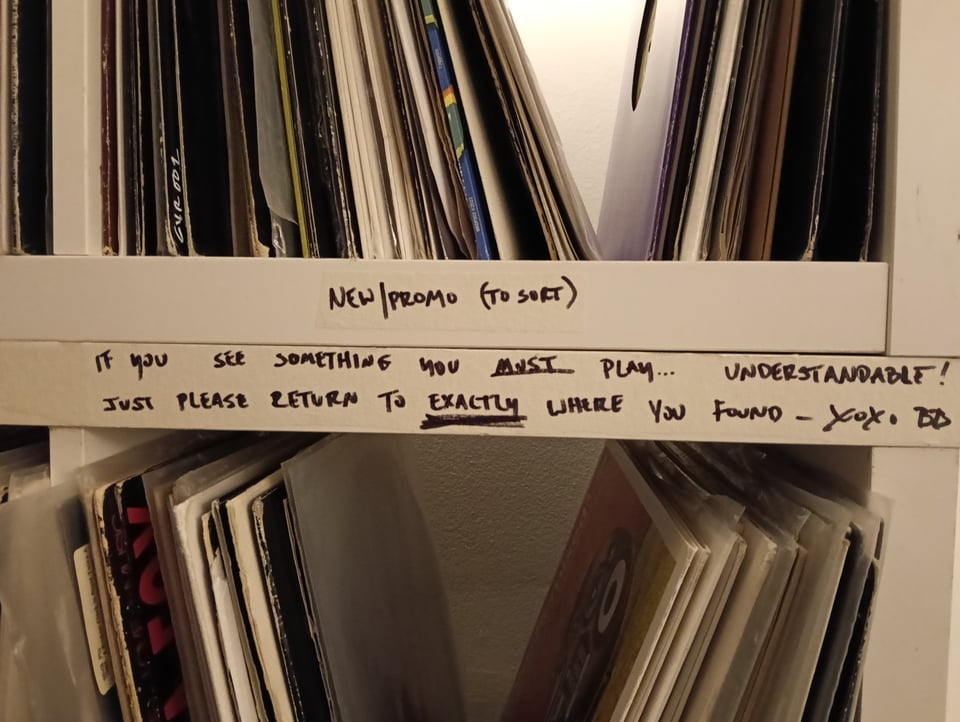 GXR 002
NEW/PROMO (TO SORT)
IF YOU SEE SOMETHING YOU MUST PLAY... UNDERSTANDABLE!
JUST PLEASE RETURN TO EXACTLY WHERE YOU FOUND - XOX. BB